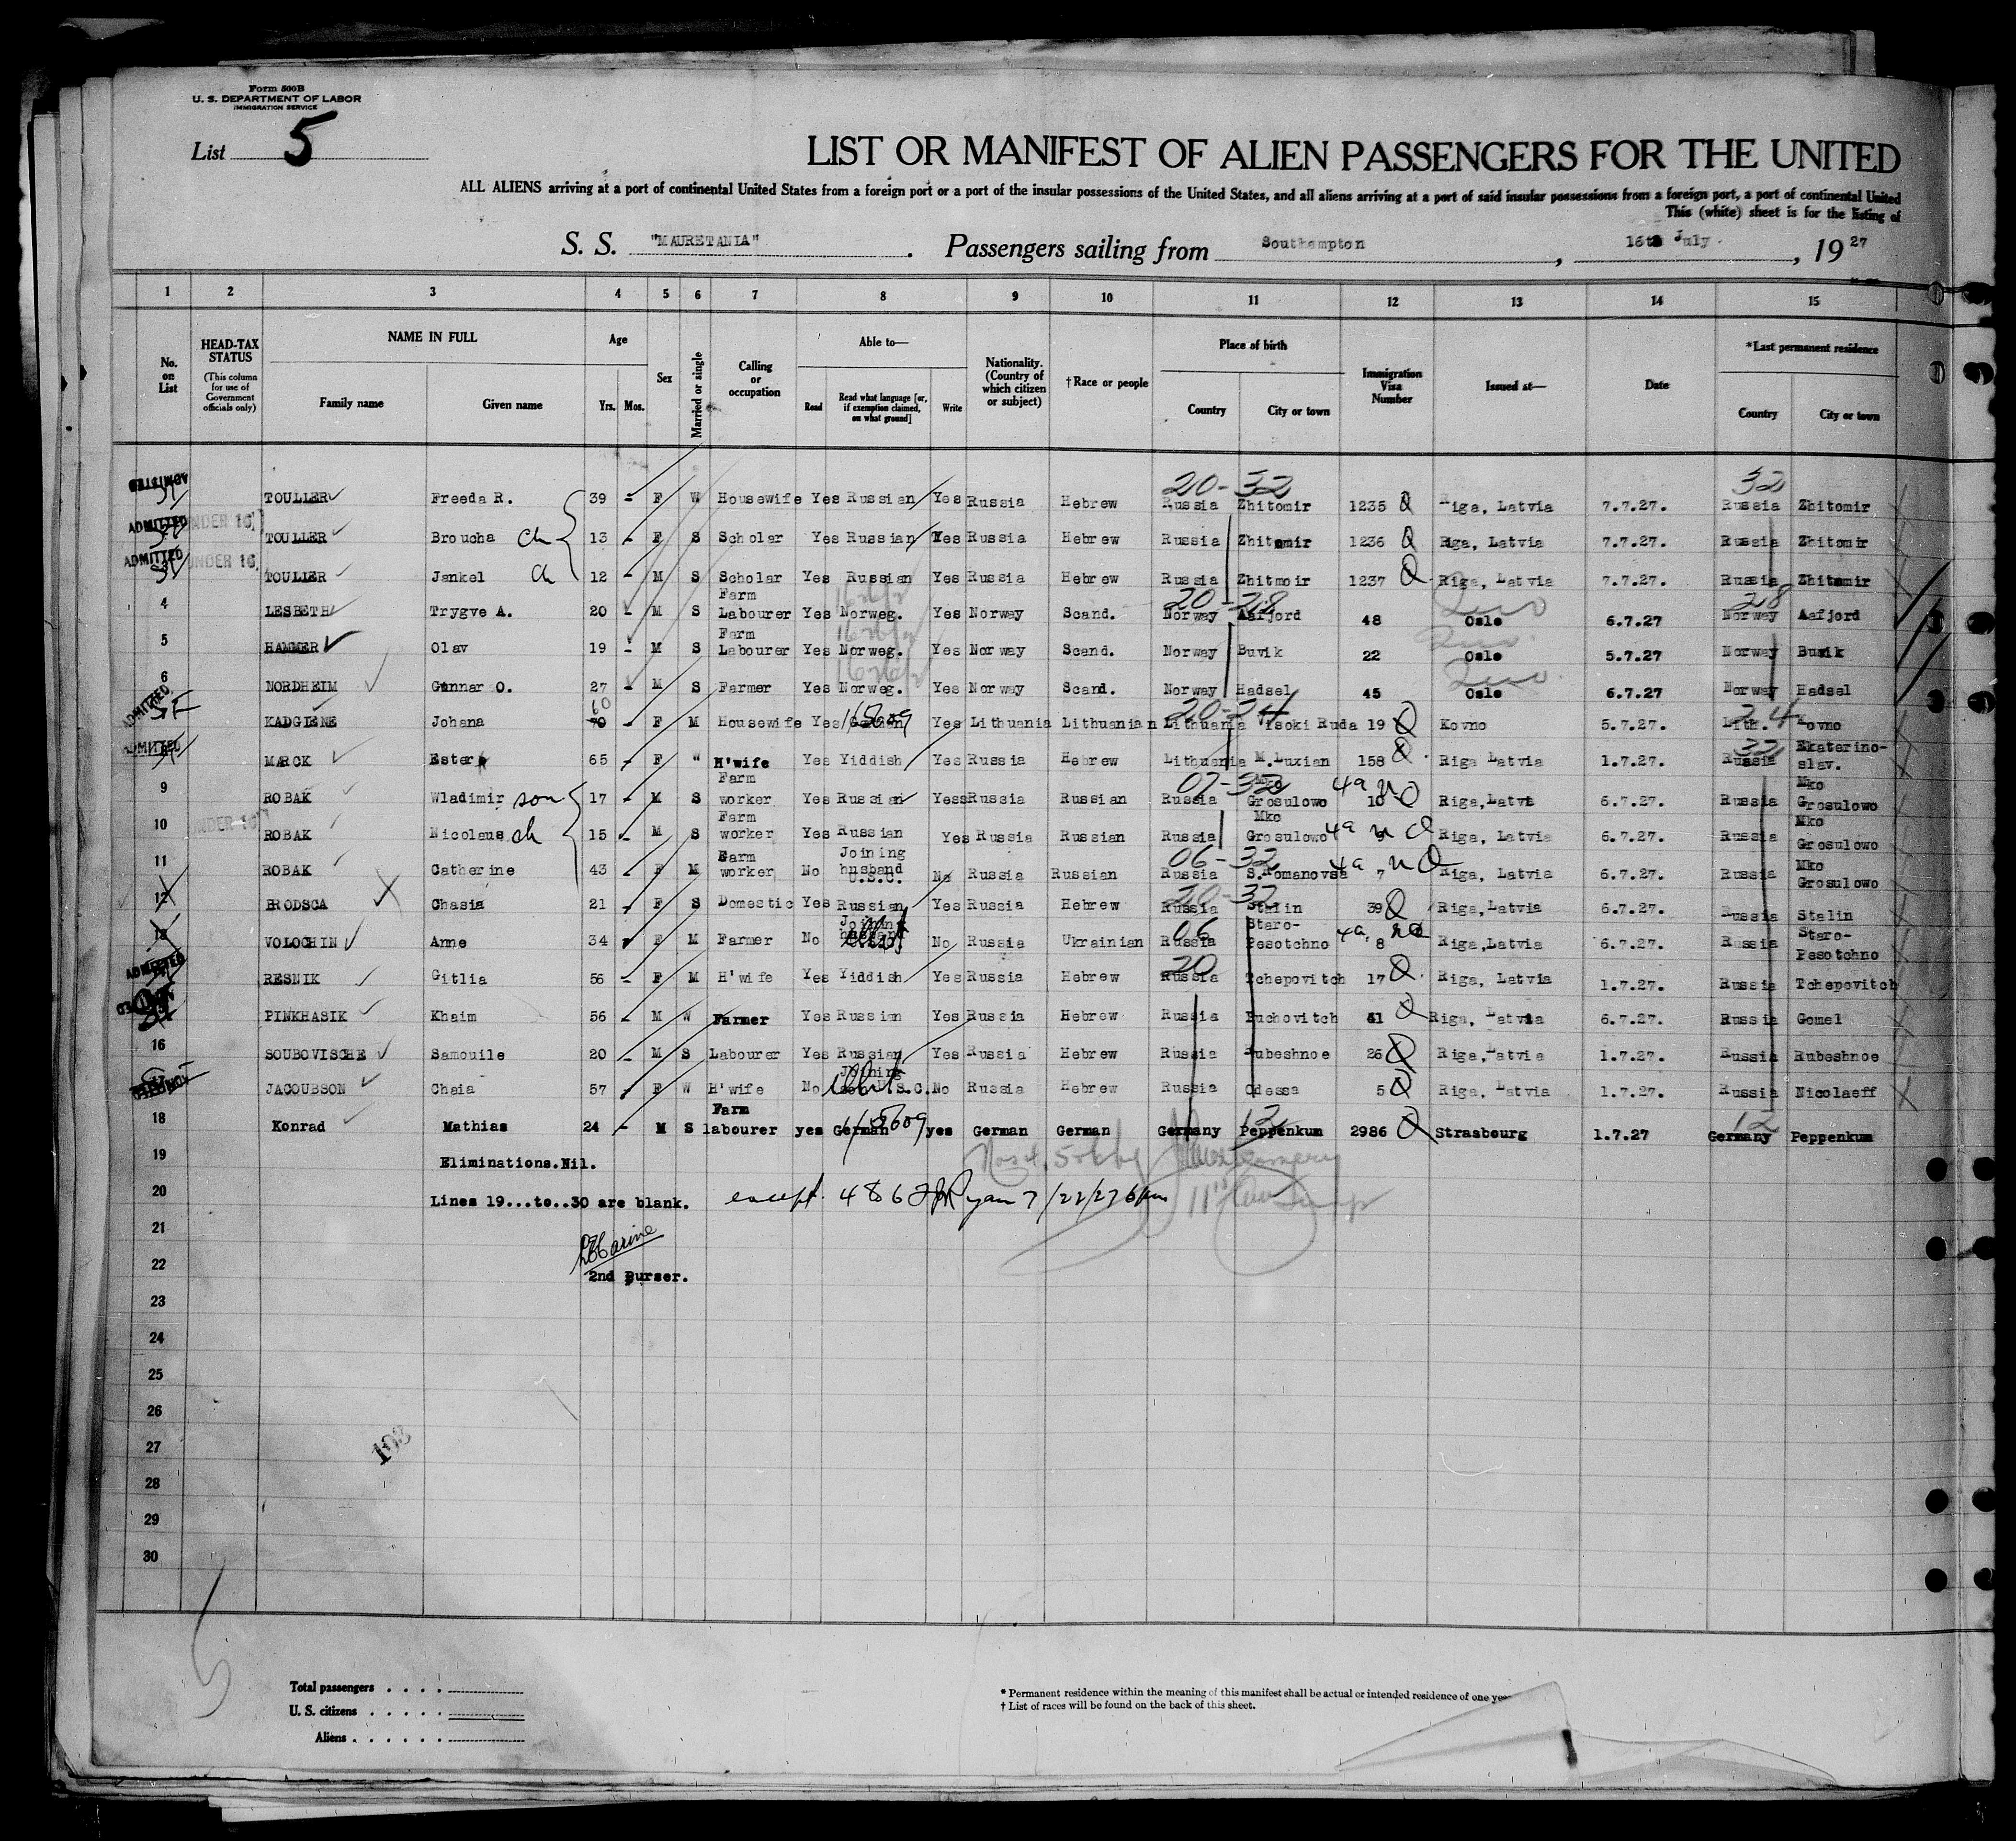 Form 500B
U. S. DEPARTMENT OF LABOR
IMMIGRATION SERVICE
List 5
LIST OR MANIFEST OF ALIEN PASSENGERS FOR THE UNITED
ALL ALIENS arriving at a port of continental United States from a foreign port or a port of the insular possessions of the United States, and all aliens arriving at a port of said insular possessions from a foreign port, a port of continental United
This (white) sheet is for the listing of
S. S. "MAURETANIA". Passengers sailing from Southampton, 16th July, 1927
1 2 3 4 5 6 7 8 9 10 11 12 13 14 15
No. on List
HEAD-TAX STATUS (This column for use of Government officials only)
NAME IN FULL
Family name Given name
Age
Yrs. Mos.
Sex
Married or single
Calling or occupation
Able to—
Read Read what language [or, if exemption claimed, on what ground] Write
Nationality. (Country of which citizen or subject)
†Race or people
Place of birth
Country City or town
Immigration Visa Number
Issued at—
Date
*Last permanent residence
Country City or town
20-32 32
ADMITTED TOULLER Freeda R. 39 - F W Housewife Yes Russian Yes Russia Hebrew Russia Zhitomir 1235 Riga, Latvia 7.7.27. Russia Zhitomir
ADMITTED UNDER 16 TOULLER Broucha ch 13 - F S Scholar Yes Russian Yes Russia Hebrew Russia Zhitomir 1236 Riga, Latvia 7.7.27. Russia Zhitomir
ADMITTED UNDER 16 TOULLER Jankel ch 12 - M S Scholar Yes Russian Yes Russia Hebrew Russia Zhitmoir 1237 Riga, Latvia 7.7.27. Russia Zhitomir
20-28 28
4 LESBETH Trygve A. 20 - M S Farm Labourer Yes Norweg. Yes Norway Scand. Norway Aafjord 48 Oslo 6.7.27 Norway Aafjord
5 HAMMER Olav 19 - M S Farm Labourer Yes Norweg. Yes Norway Scand. Norway Buvik 22 Oslo 5.7.27 Norway Buvik
6 NORDHEIM Gunnar O. 27 - M S Farmer Yes Norweg. Yes Norway Scand. Norway Hadsel 45 Oslo 6.7.27 Norway Hadsel
60 20-24 24
ADMITTED KADGIENE Johana 70 - F M Housewife Yes Yes Lithuania Lithuanian Lithuania Visoki Ruda 19 Kovno 5.7.27. Lith. Kovno
ADMITTED MARCK Ester 65 - F " H'wife Yes Yiddish Yes Russia Hebrew Lithuania M.Luxian 158 Riga Latvia 1.7.27. Russia Ekaterino-slav.
07-32
9 ROBAK Wladimir son 17 - M S Farm worker Yes Russian Yes Russia Russian Russia Mko Grosulowo 10 Riga, Latvia 6.7.27. Russia Mko Grosulowo
10 UNDER 16 ROBAK Nicolaus ch 15 - M S Farm worker Yes Russian Yes Russia Russian Russia Mko Grosulowo 9 Riga, Latvia 6.7.27. Russia Mko Grosulowo
06-32
11 ROBAK Catherine 43 - F M Farm worker No Joining husband U.S.C. No Russia Russian Russia S.Romanovsa 7 Riga, Latvia 6.7.27. Russia Mko Grosulowo
20-32
12 BRODSCA Chasia 21 - F S Domestic Yes Russian Yes Russia Hebrew Russia Stalin 39 Riga, Latvia 6.7.27. Russia Stalin
06
13 VOLOCHIN Anne 34 - F M Farmer No Joining husband No Russia Ukrainian Russia Staro-Pesotchno 8 Riga, Latvia 6.7.27. Russia Staro-Pesotchno
20
ADMITTED RESNIK Gitlia 56 - F M H'wife Yes Yiddish Yes Russia Hebrew Russia Tchepovitch 17 Riga, Latvia 1.7.27. Russia Tchepovitch
PINKHASIK Khaim 56 - M W Farmer Yes Russian Yes Russia Hebrew Russia Puchovitch 41 Riga, Latvia 6.7.27. Russia Gomel
16 SOUBOVISCHE Samouile 20 - M S Labourer Yes Russian Yes Russia Hebrew Russia Rubeshnoe 26 Riga, Latvia 1.7.27. Russia Rubeshnoe
JACOUBSON Chaia 57 - F W H'wife No Joining U.S.C. No Russia Hebrew Russia Odessa 5 Riga, Latvia 1.7.27. Russia Nicolaeff
12 12
18 Konrad Mathias 24 - M S Farm labourer yes German yes German German Germany Peppenkum 2986 Strasbourg 1.7.27 Germany Peppenkum
19 Eliminations.Nil.
20 Lines 19...to..30 are blank. except 4 8 6 Ryan 7/22/27 6pm
21
22 2nd Purser.
23
24
25
26
27
28
29
30
103
Total passengers . . . .
U. S. citizens . . . . .
Aliens . . . . . .
* Permanent residence within the meaning of this manifest shall be actual or intended residence of one year
† List of races will be found on the back of this sheet.